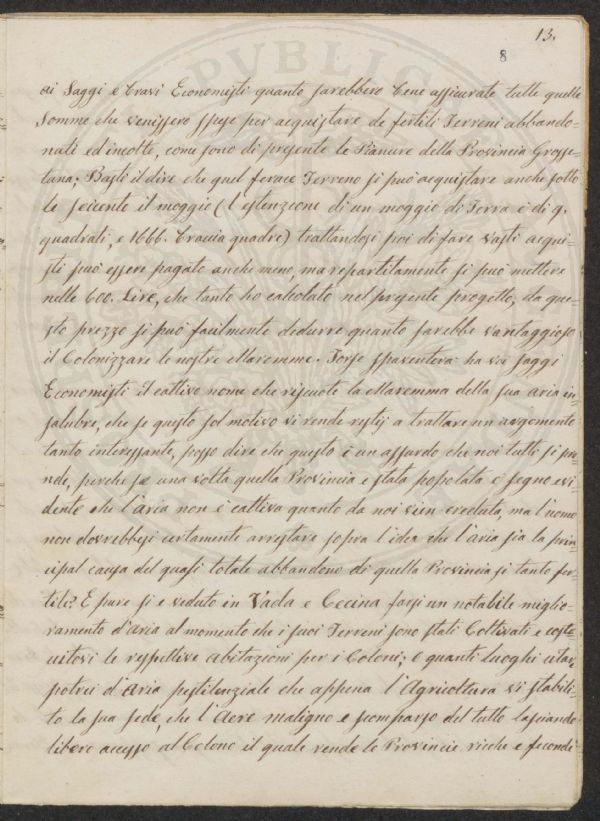 13.
8
ai Saggi e bravi Economisti quanto sarebbero bene assicurate tutte quelle
Somme che venissero spese per acquistare de fertili Terreni abbando-
nati ed incolti, come sono di presente le Pianure della Provincia Grosse-
tana; Basti il dire che quel ferace Terreno si può acquistare anche sotto
le seicento il moggio (l'estenzione di un moggio di Terra è di q.
quadrati, e 1666. braccia quadre) trattandosi poi di fare vasti acqui-
sti può essere pagato anche meno, ma repartitamente si può mettere
nelle 600. Lire, che tanto ho calcolato nel presente progetto, da que-
sto prezzo si può facilmente dedurre quanto sarebbe vantaggioso
il Colonizzare le nostre Maremme. Forse spaventerà ha voi saggi
Economisti il cattivo nome che riscuote la Maremma della sua aria in-
salubre, che se questo sol motivo vi rende restij a trattare un argomento
tanto interessante, posso dire che questo è un assurdo che noi tutti si pre-
nde, perchè se una volta quella Provincia è stata popolata è segno evi-
dente che l'aria non è cattiva quanto da noi vien creduta, ma l'uomo
non dovrebbesi certamente arrestare sopra l'idea che l'aria sia la prin-
cipal causa del quasi totale abbandono di quella Provincia sì tanto fer-
tile? E pure si è veduto in Vada e Cecina farsi un notabile miglio-
ramento d'aria al momento che i suoi Terreni sono stati Coltivati e costr-
uitovi le respettive abitazioni per i Coloni; e quanti luoghi citar
potrei d'aria pestilenziale che appena l'Agricoltura vi stabili-
to la sua sede, che l'Aere maligno è scomparso del tutto lasciando
libero accesso al Colono il quale rende le Provincie ricche e fecondi
PUBLIC